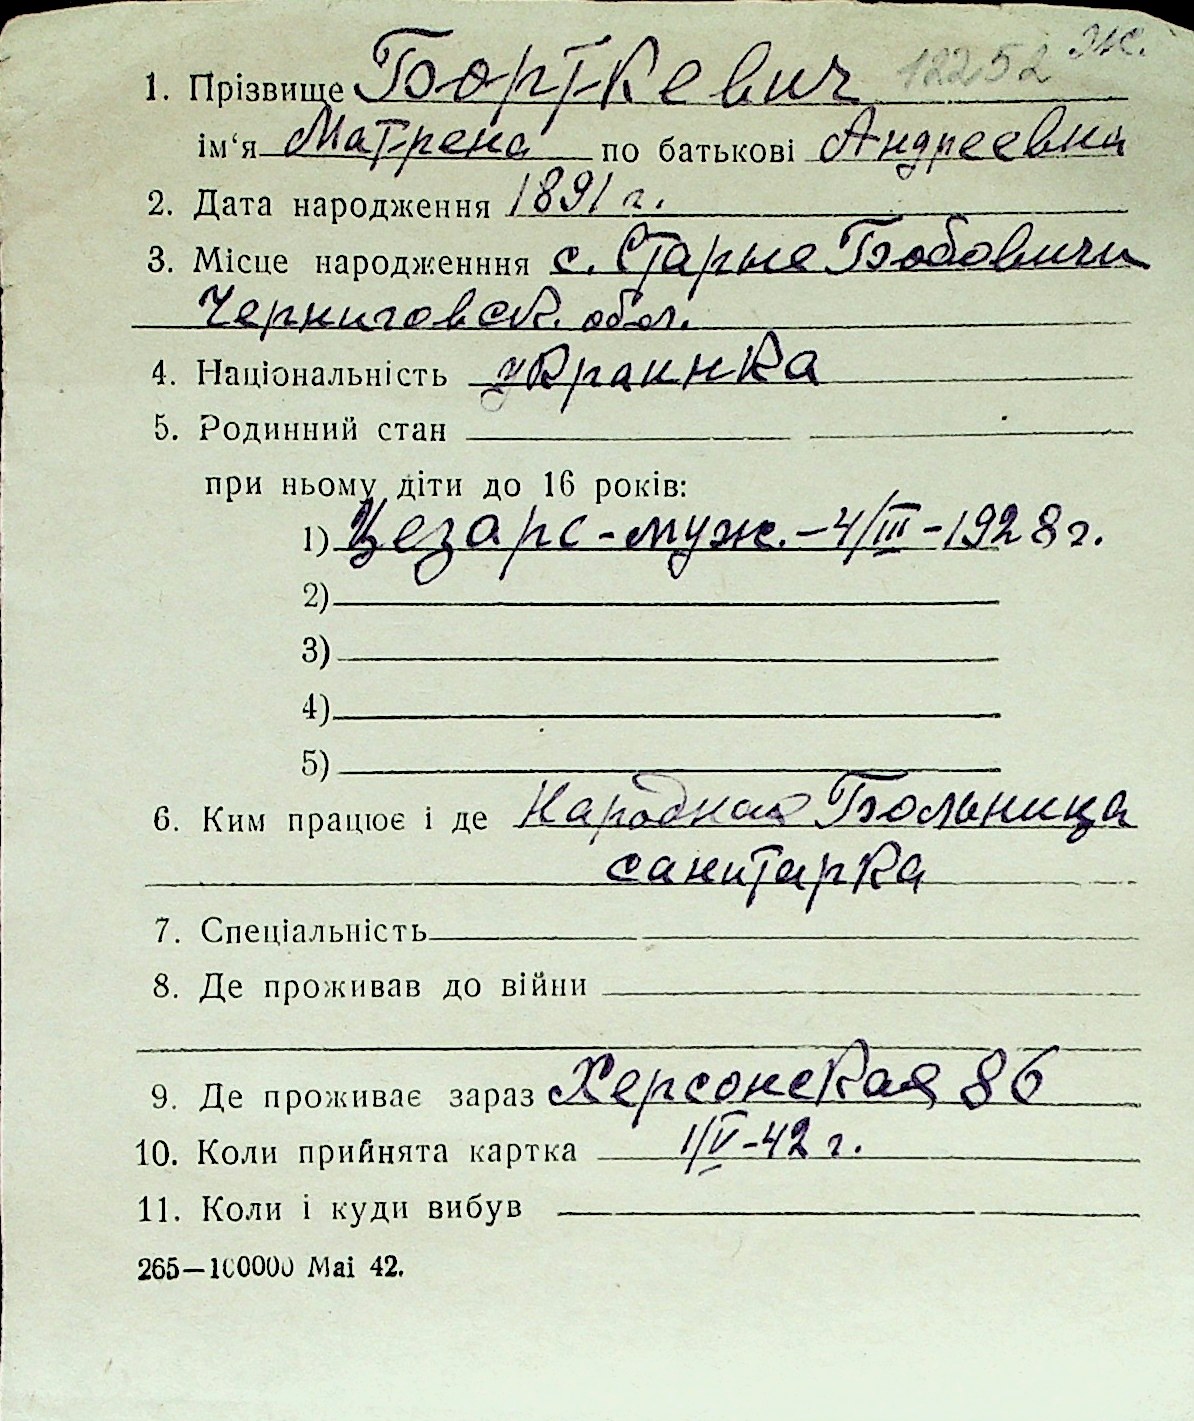 12252 Ж.
1. Прізвище Борткевич
ім'я Матрена по батькові Андреевна
2. Дата народження 1891 г.
3. Місце народженння с. Старые Бобовичи
Черниговск. обол.
4. Національність украинка
5. Родинний стан
при ньому діти до 16 років:
1) Цезарс - муж. - 4/III - 1928 г.
2)
3)
4)
5)
6. Ким працює і де Народная Больница
санитарка
7. Спеціальність
8. Де проживав до війни
9. Де проживає зараз Херсонская 86
10. Коли прийнята картка 1/V - 42 г.
11. Коли і куди вибув
265—100000 Mai 42.